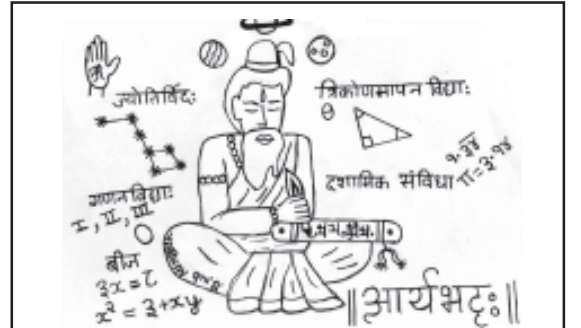 ज्योतिर्विदः
त्रिकोणमापन विद्याः
θ
दशामिक संविधा
१.३४
π=३.१४
गणन विद्याः
I, II, III
बीज
३x = ८
x² = ३+xy
॥आर्यभटः॥